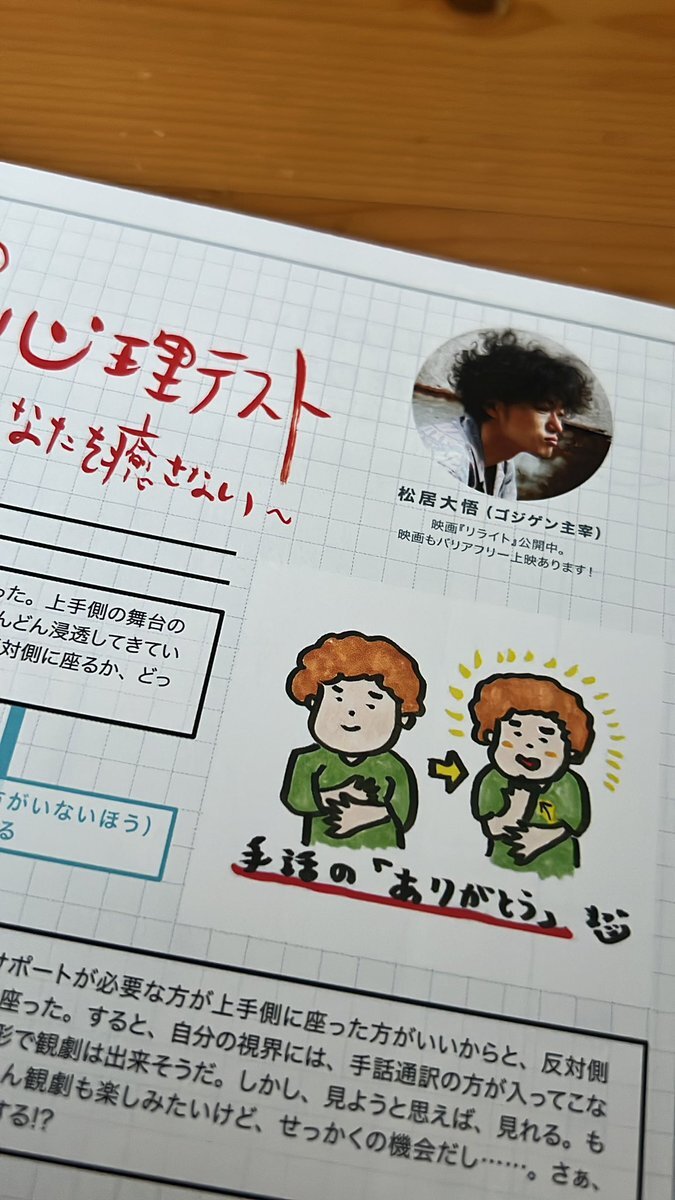 心理テスト
なたを癒さない〜
松居大悟(ゴジゲン主宰)
映画『リライト』公開中。
映画もバリアフリー上映あります!
った。上手側の舞台の
んどん浸透してきてい
対側に座るか、どっ
方がいないほう)
る
手話の「ありがとう」
サポートが必要な方が上手側に座った方がいいからと、反対側
座った。すると、自分の視界には、手話通訳の方が入ってこな
形で観劇は出来そうだ。しかし、見ようと思えば、見れる。も
ん観劇も楽しみたいけど、せっかくの機会だし……。さぁ、
する!?